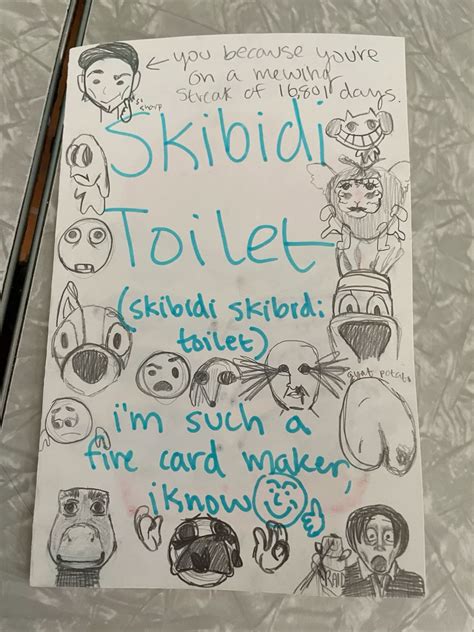 ← you because you're
on a mewing
streak of 16801 days.
so
sharp
Skibidi
Toilet
(skibidi skibidi
toilet)
i'm such a
fire card maker,
i know
RAID